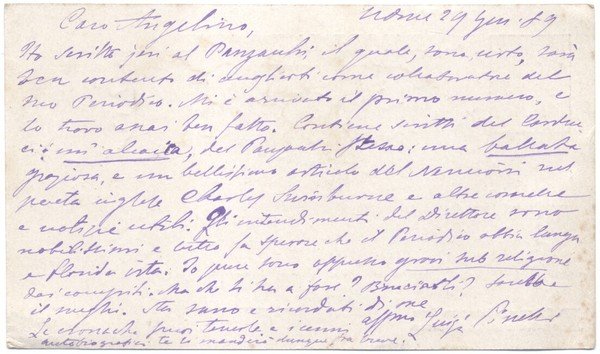 Caro Angelino, Udine 29 Gen. 89
Ho scritto jeri al Panzacchi il quale, sono certo, sarà
ben contento di accoglierti come collaboratore del
suo Periodico. Mi è arrivato il primo numero, e
lo trovo assai ben fatto. Contiene scritti del Carduc
ci: un' alcaica, del Panzacchi stesso: una ballata
graziosa, e un bellissimo articolo del Nencioni sul
poeta inglese Charles Swinburne e altre cosette
e notizie utili. Gli intendimenti del Direttore sono
nobilissimi e tutto fa sperare che il Periodico abbia lunga
e florida vita. Io pure sono oppresso
dai compiti. Ma che si ha a fare? Bruciarli? Sarebbe
il meglio. Sta sano e ricordati di me
affmo Luigi Pinelli
Le cronache puoi tenerle, e i cenni
autobiografici te li manderò dunque fra breve.